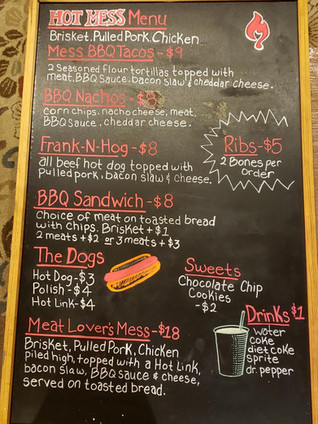 HOT MESS Menu
Brisket, Pulled Pork, Chicken
Mess BBQ Tacos - $9
2 Seasoned flour tortillas topped with
meat, BBQ Sauce, bacon slaw & cheddar cheese.
BBQ Nachos - $8
corn chips, nacho cheese, meat,
BBQ Sauce, cheddar cheese.
Frank-N-Hog - $8
all beef hot dog topped with
Pulled pork, bacon slaw & cheese.
Ribs - $5
2 Bones per
order
BBQ Sandwich - $8
Choice of meat on toasted bread
with chips. Brisket + $1
2 meats + $2 or 3 meats + $3
The Dogs
Hot Dog - $3
Polish - $4
Hot Link - $4
Sweets
Chocolate Chip
Cookies
- $2
Drinks $1
water
coke
diet coke
sprite
dr. pepper
Meat Lover's Mess - $18
Brisket, Pulled Pork, Chicken
piled high, topped with a Hot Link,
bacon slaw, BBQ sauce & cheese,
served on toasted bread.